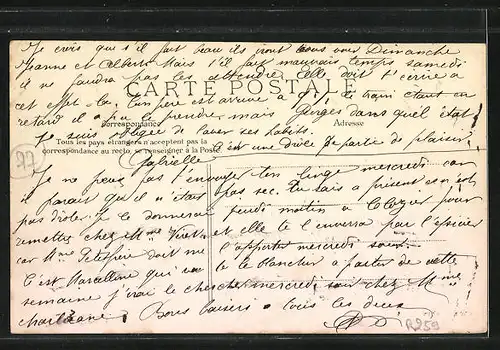 Je crois que s'il fait beau ils iront vous voir Dimanche
Jeanne et Albert. Mais s'il fait mauvais temps samedi
il ne faudra pas les attendre. Elle doit t'écrire à
CARTE POSTALE
cet effet-là. Ton père est arrivé à le train étant en
retard il a pu le prendre, mais Georges dans quel état
Correspondance
Adresse
Je suis obligée de laver ses habits.
Tous les pays étrangers n'acceptent pas la
correspondance au recto, se renseigner à la Poste
c'est une drôle de partie de plaisir
Gabrielle
77
Je ne peux pas t'envoyer ton linge mercredi car
il paraît qu'il n'était pas sec. Tu sais à présent ce n'est
pas drôle. Je le donnerai jeudi matin à
demettes chez Mme Viret et elle te l'enverra par l'épicier
car Mme doit me l'apporter mercredi soir.
C'est Marcelline qui va te le blanchir à partir de cette
semaine j'irai le chercher mercredi soir chez Mme
Bons baisers à tous les deux
R259